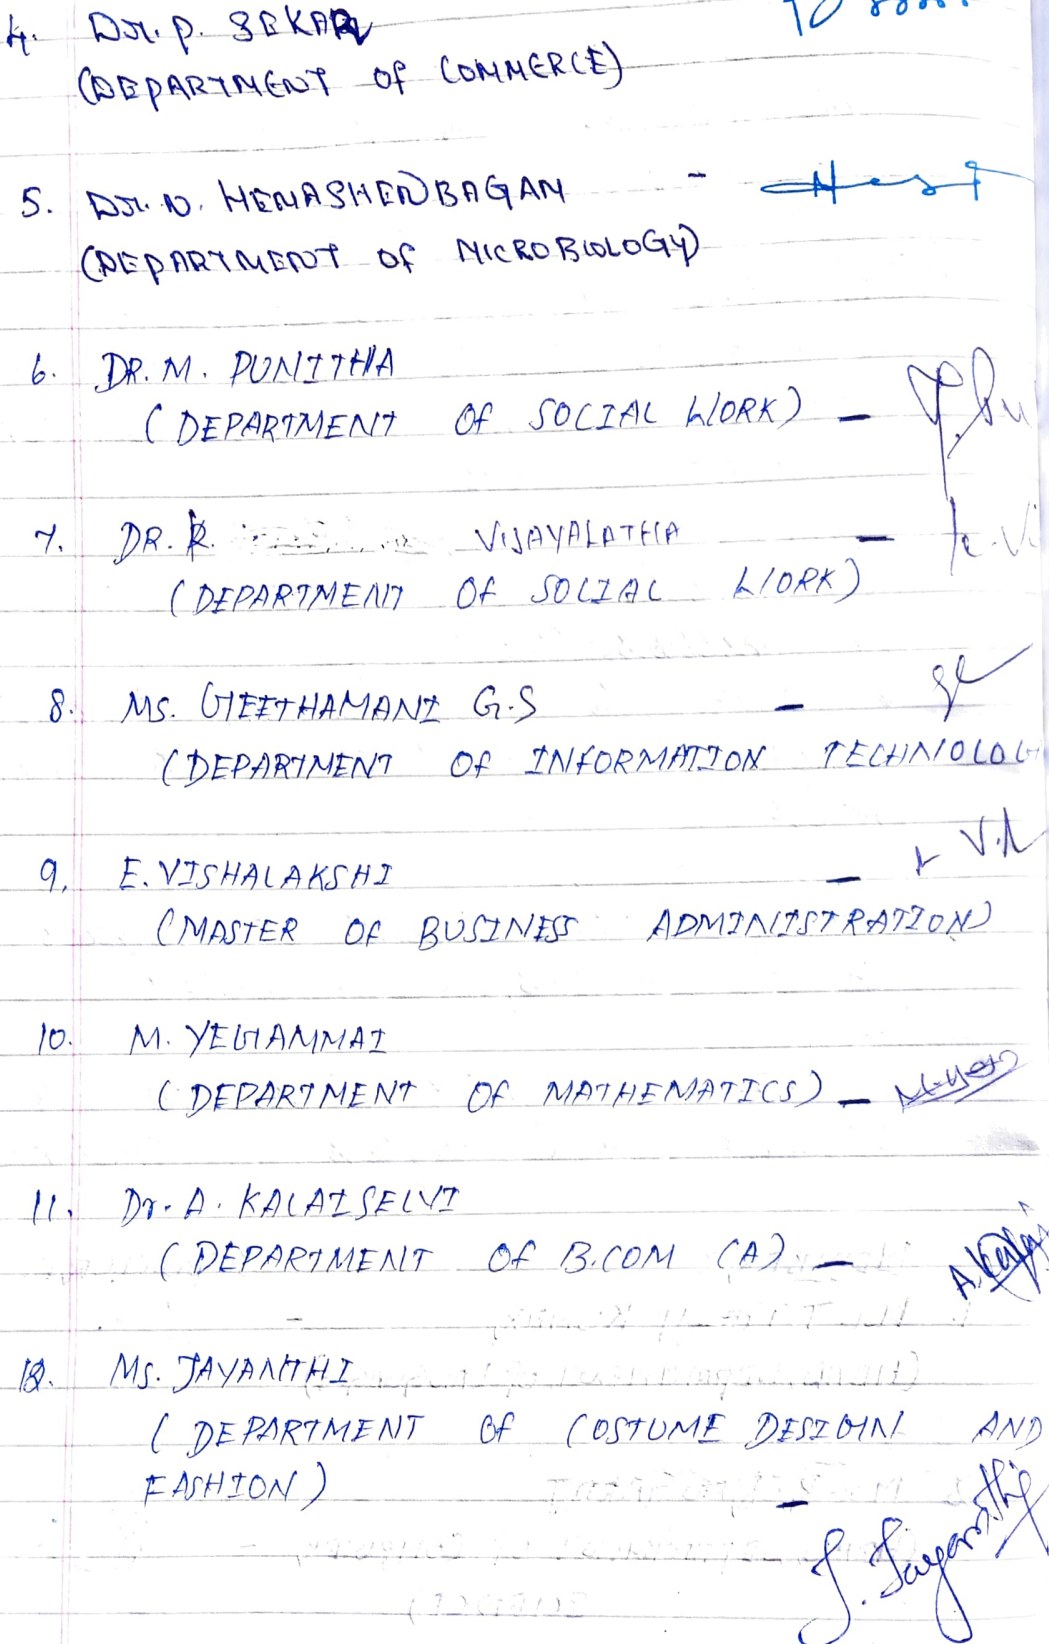 4. Dr. P. SEKAR
(DEPARTMENT OF COMMERCE)
5. Dr. N. HEMASHENBAGAM -
(DEPARTMENT OF MICROBIOLOGY)
6. DR. M. PUNITHA
(DEPARTMENT OF SOCIAL WORK) -
7. DR. K. VIJAYALATHA -
(DEPARTMENT OF SOCIAL WORK)
8. MS. GEETHAMANI G.S -
(DEPARTMENT OF INFORMATION TECHNOLOG
9. E. VISHALAKSHI -
(MASTER OF BUSINESS ADMINISTRATION)
10. M. YEGAMMAI
(DEPARTMENT OF MATHEMATICS) -
11. Dr. A. KALAISELVI
(DEPARTMENT OF B.COM (A) - A. Kalai
12. MS. JAYANTHI
(DEPARTMENT OF COSTUME DESIGN AND
FASHION) -
J. Jayanthi